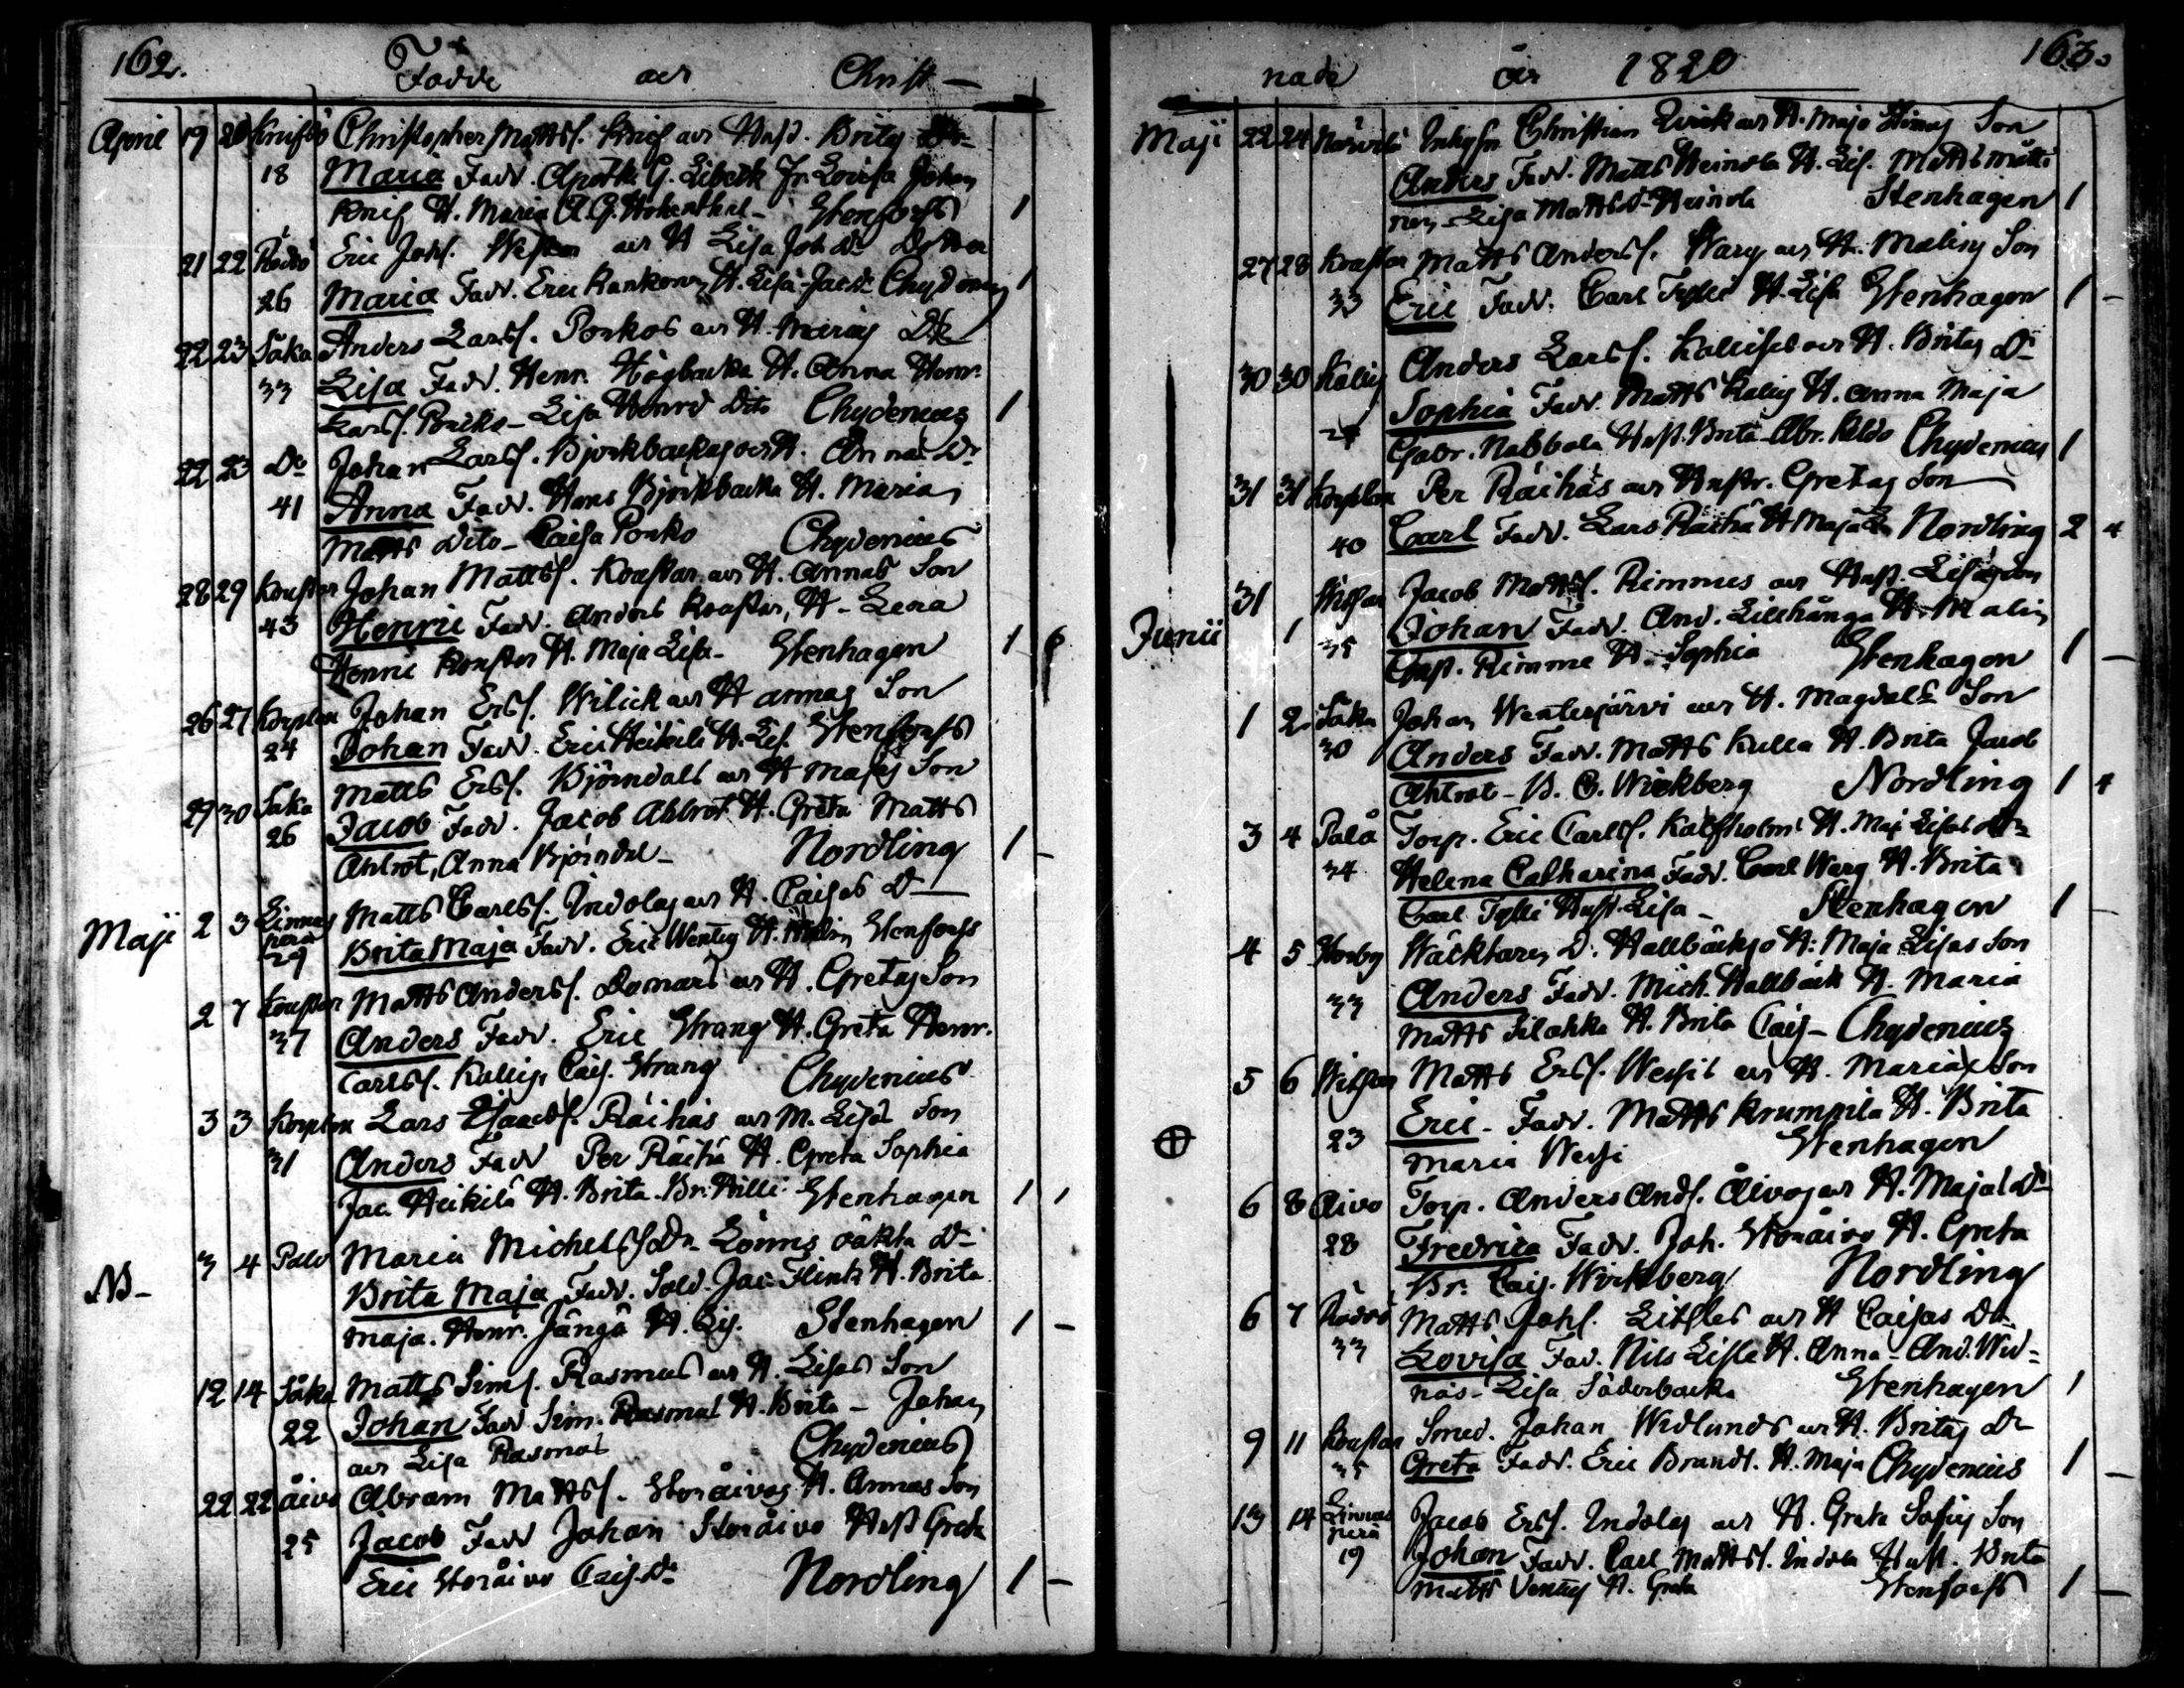 162.
Födde och Christ-
April 19 20 Knifsö Christopher Mattsſ. Knif och Husſ. Britas Dr
18 Maria Fadd. Apothe G. Libeck Fr. Lovisa Johan
Knif H. Maria A. G. Hohenthal - Stenfors 1
21 22 Rödsö Eric Johſ. och H Lisa Joh Dr Dotter
26 Maria Fadd. Eric Rankonen H. Lisa Jac Dr Chydenius 1
22 23 Såka Anders Larsſ. Ponkos och H. Marias Dr
33 Lisa Fadd. Henr. Högbacka H. Anna Henr.
Larsſ. - Lisa Henrd Dito Chydenius 1
22 23 Do Johan Larsſ. Björkbackas och H. Annas Dr
41 Anna Fadd. Hans Björkbacka H. Maria
Matts Dito - Caisa Ponko Chydenius
28 29 Kouster Johan Mattsſ. Koustar och H. Annas Son
43 Henric Fadd. Anders Koustar, H. Lena
Henric Koustar H. Maja Lisa - Stenhagen 1 6
26 27 Korplax Johan Ersſ. Wilick och H Annas Son
24 Johan Fadd. Eric Heikilä H. Lis. Stenfors
29 30 Såka Matts Ersſ. Björndals och H Majas Son
26 Jacob Fadd. Jacob Ahlrot H. Greta Matts
Ahlrot, Anna Björndal - Nordling 1 -
Maji 2 3 Linnus Matts Carlsſ. Indolas och H. Caisas D
perä 29 Brita Maja Fadd. Eric Wentus H. Malin Stenfors
2 7 Koustar Matts Andersſ. Domars och H. Gretas Son
37 Anders Fadd. Eric Strang H. Greta Henr.
Carlsſ. Kallis, Cais. Strang Chydenius
3 3 Korplax Lars Isacsſ. Räihäs och M. Lisas Son
31 Anders Fadd Per Räihä H. Greta Sophia
Jac. Heikilä H. Brita Br. Stenhagen 1 1
NB - 3 4 Palo Maria Michelsſ Dr Lönns oäkta Dr
Brita Maja Fadd. Sold. Jac Flink H. Brita
Maja. Henr. Jängä H. Lis. Stenhagen 1 -
12 14 Såka Matts Simſ. Rasmus och H. Lisas Son
22 Johan Fadd Sim. Rasmus H. Brita - Johan
och Lisa Rasmus Chydenius
22 22 Åivo Abram Mattsſ. Storåivos H. Annas Son
25 Jacob Fadd Johan Storåivo Hust Greta
Eric Storåivo Cajs. Dr Nordling 1 -
163.
nade år 1820
Maji 22 24 Närvilä Inhysn Christian och H. Maja Stinas Son
Anders Fadd. Matts Heinola H. Lis. Matts
nen - Lisa Matts Dr Heinola Stenhagen 1
27 28 Koustar Matts Andersſ. Warg och H. Malins Son
33 Eric Fadd. Carl Tylli H. Lisa Stenhagen 1 -
30 30 Kallis Anders Larsſ. Kallises och H. Britas Dr
Sophia Fadd. Matts Kallis H. Anna Maja
Gabr. Nabbala Hust. Brita Abr. Chydenius 1
31 31 Korplax Per Räihäs och Hustr. Gretas Son
40 Carl Fadd. Lars Räihä H Maja Nordling 2 4
31 Jacob Mattsſ. Rimmes och Hust. Lisas Son
Junii 1 35 Johan Fadd. And. Lillhånga H. Malin
Gust. Rimme H. Sophia Stenhagen 1 -
1 2 Såka Johan Wentesjärvi och H. Magdals Son
30 Anders Fadd. Matts Kulla H. Brita Jacob
Ahlrot - B. C. Wickberg Nordling 1 4
3 4 Palå Torp. Eric Carlsſ. Kalfholms H. Maj Lisas Dr
34 Helena Catharina Fadd. Carl Warg H. Brita
Carl Tylli Hust. Lisa - Stenhagen 1 -
4 5 Storby Wäcktaren D. Hallbäcks o H: Maja Lisas Son
33 Anders Fadd. Mich. Hallbäck H. Maria
Matts Silahka H. Brita Cais - Chydenius
5 6 Matts Ersſ. Wessis och H. Marias Son
23 Eric - Fadd. Matts Krumpila H. Brita
Maria Wessi Stenhagen
6 8 Åivo Torp. Anders Andſ. Åivos och H. Majas Dr
28 Fredrica Fadd. Joh. Storåivo H. Greta
Br. Cajs. Wickberg Nordling
6 7 Rödsö Matts Johſ. Litsles och H Caisas Dr
33 Lovisa Fad. Nils Lisle H. Anna - And. Wid-
näs - Lisa Söderbacka Stenhagen 1
9 11 Koustar Smed. Johan Widlunds och H. Britas Dr
35 Greta Fadd. Eric Brandt. H. Maja Chydenius 1 -
13 14 Linnus Jacob Ersſ. Indolas och H. Greta Sofias Son
perä 19 Johan Fadd. Carl Mattsſ. Indola Hust. Brita
Matts Ventus H. Greta Stenfors 1 -